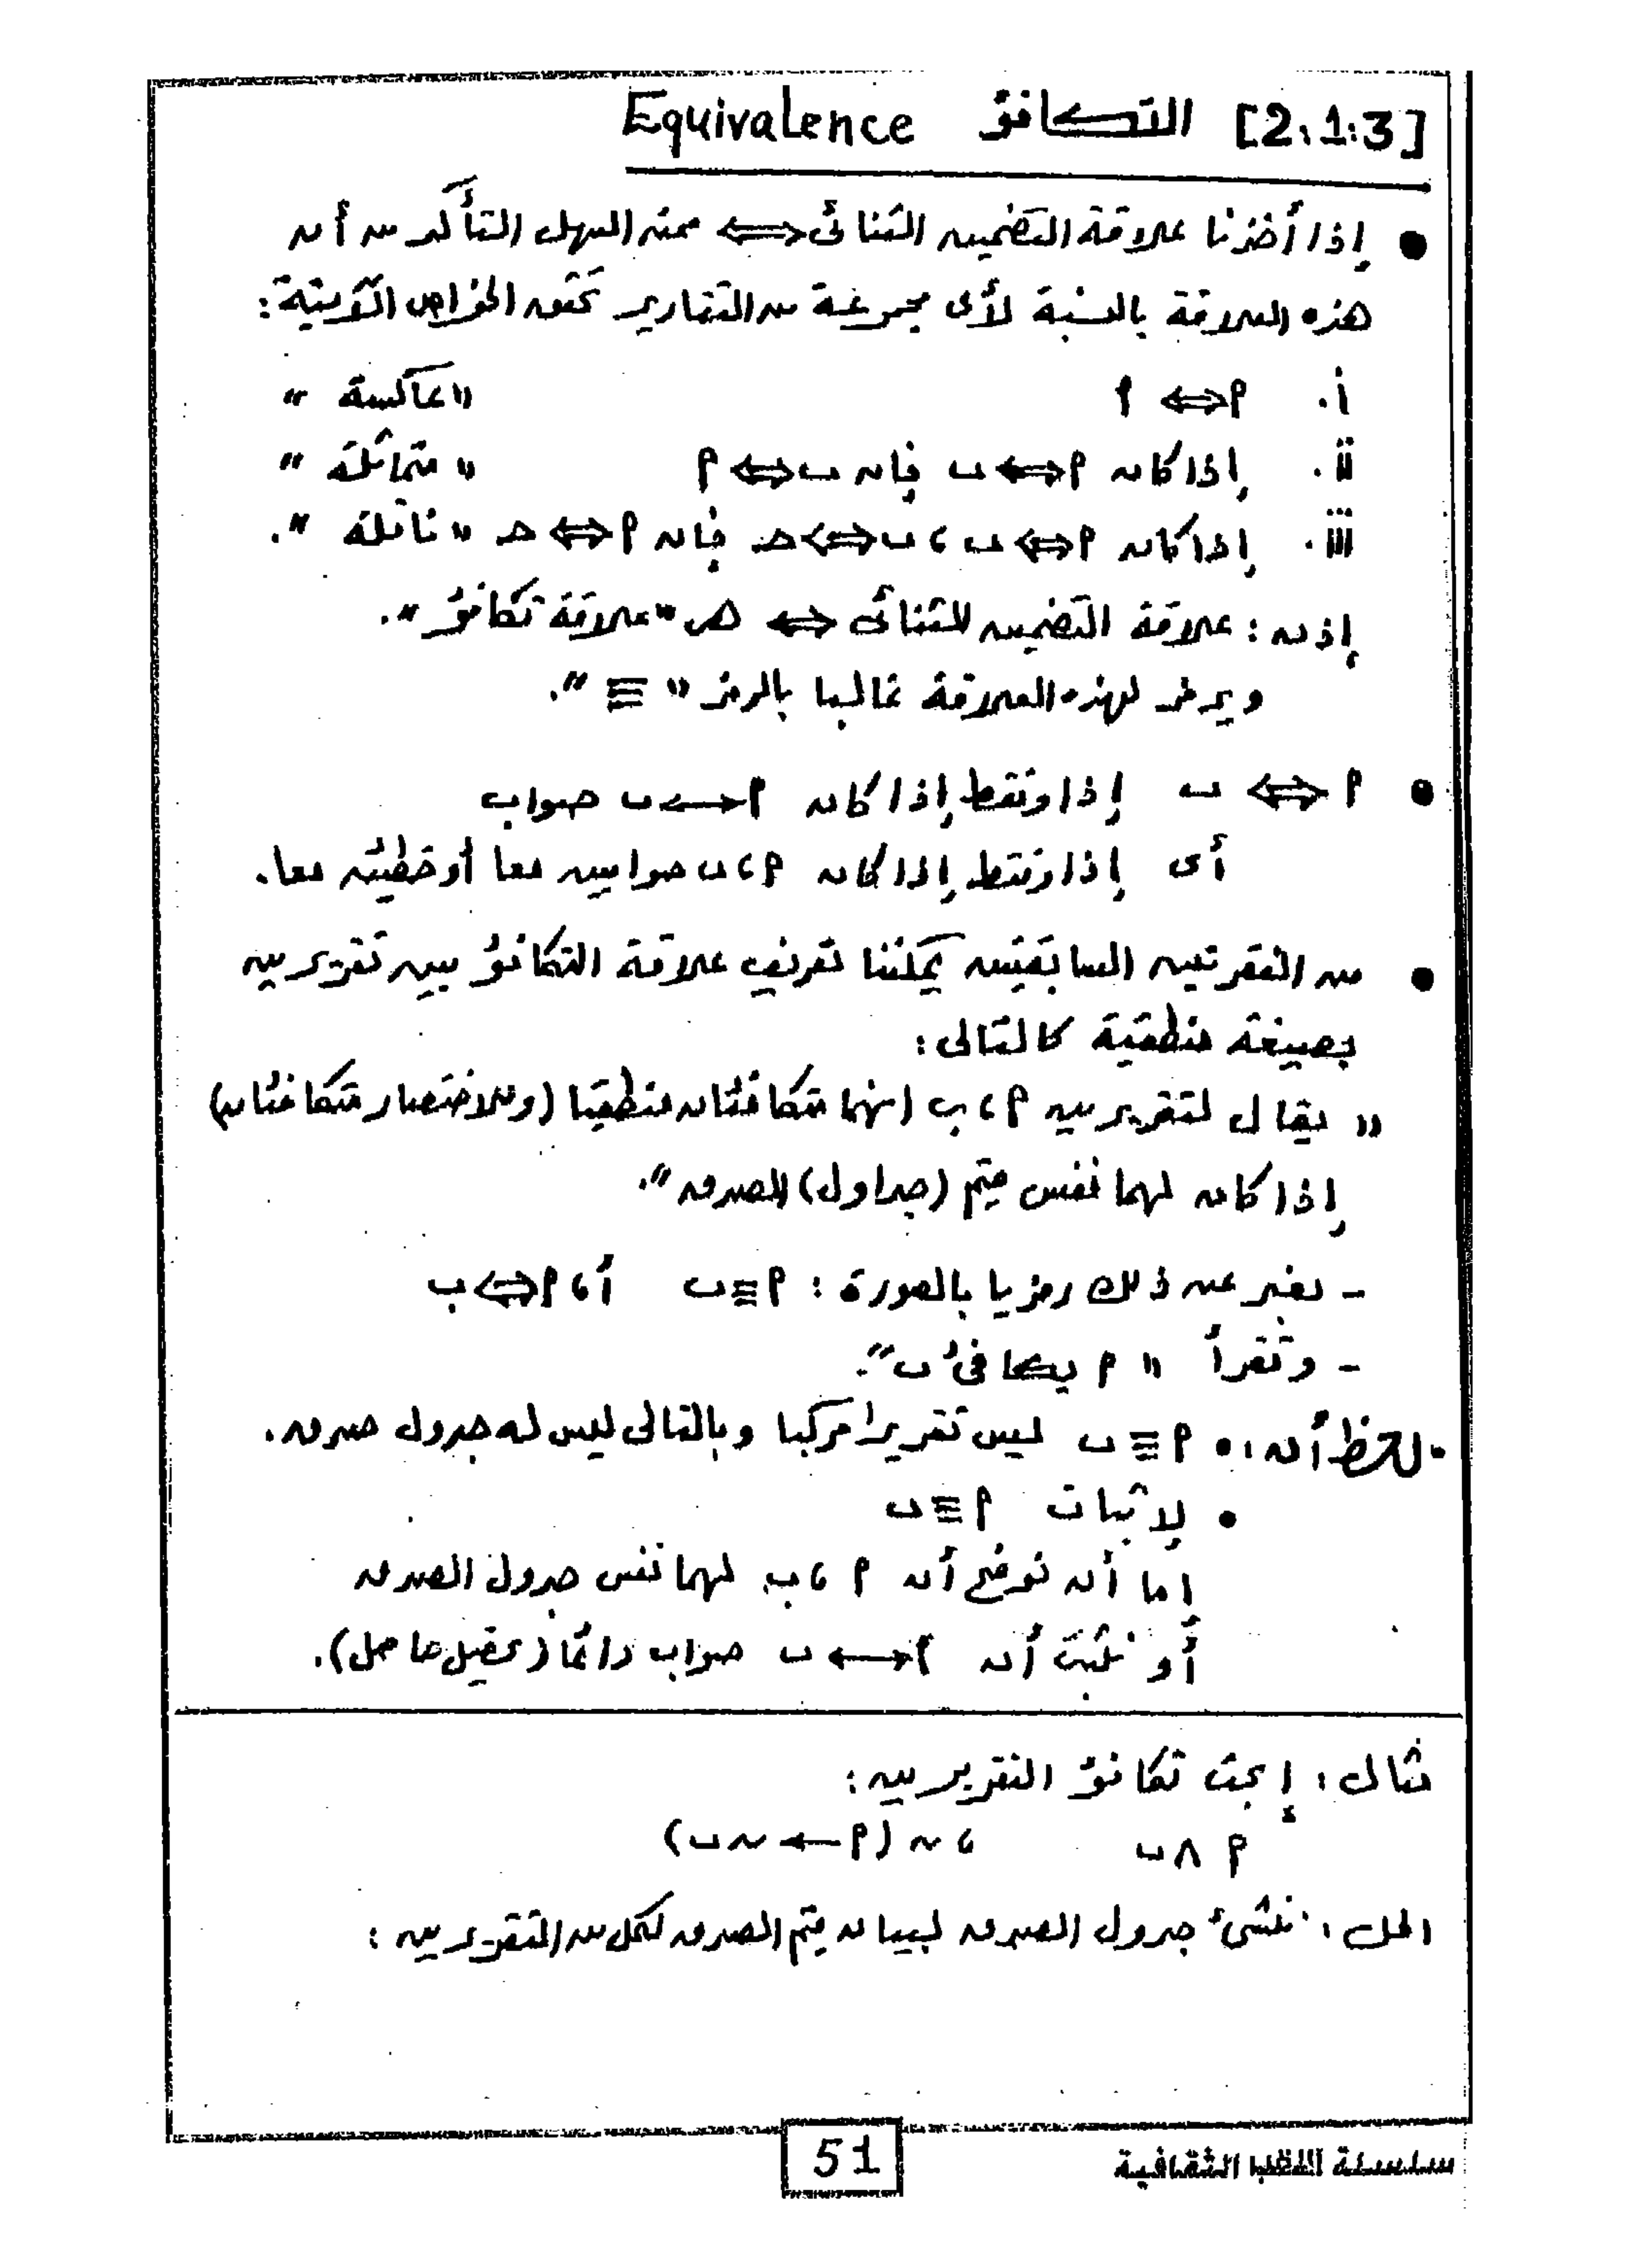 [2.1.3] التكافؤ Equivalence
● إذا أخذنا علاقة التضمين الثنائى ⇔ فمن السهل التأكد من أن
هذه العلاقة بالنسبة لأى مجموعة من التقارير تحقق الخواص الآتية:
i. ‏P ⇔ P «عاكسة»
ii. إذا كان P ⇔ ب فإن ب ⇔ P «متماثلة»
iii. إذا كان P ⇔ ب ، ب ⇔ حـ فإن P ⇔ حـ «ناقلة».
إذن : علاقة التضمين الثنائى ⇔ هى «علاقة تكافؤ».
ويرمز لهذه العلاقة غالبا بالرمز «≡».
● P ⇔ ب إذا وفقط إذا كان P ↔ ب صواب
أى إذا وفقط إذا كان P ، ب صوابين معا أو خطئين معا.
● من الفقرتين السابقتين يمكننا تعريف علاقة التكافؤ بين تقريرين
بصيغة منطقية كالتالى :
«يقال لتقريرين P ، ب إنهما متكافئان منطقيا (وللاختصار متكافئان)
إذا كان لهما نفس قيم (جداول) الصدق».
- نعبر عن ذلك رمزيا بالصورة : P ≡ ب أ، P ⇔ ب
- وتقرأ «P يكافئ ب».
• لاحظ أن : • P ≡ ب ليس تقريرا مركبا وبالتالى ليس له جدول صدق.
• لإثبات P ≡ ب
اما أن نوضح أن P ، ب لهما نفس جدول الصدق
أو نثبت أن P ↔ ب صواب دائما (تحصيل حاصل).
مثال : إبحث تكافؤ التقريرين :
P ∧ ب ، ~ (P ← ~ ب)
الحل : ننشئ جدول الصدق لبيان قيم الصدق لكل من التقريرين :
51
سلسلة اللظب الثقافية